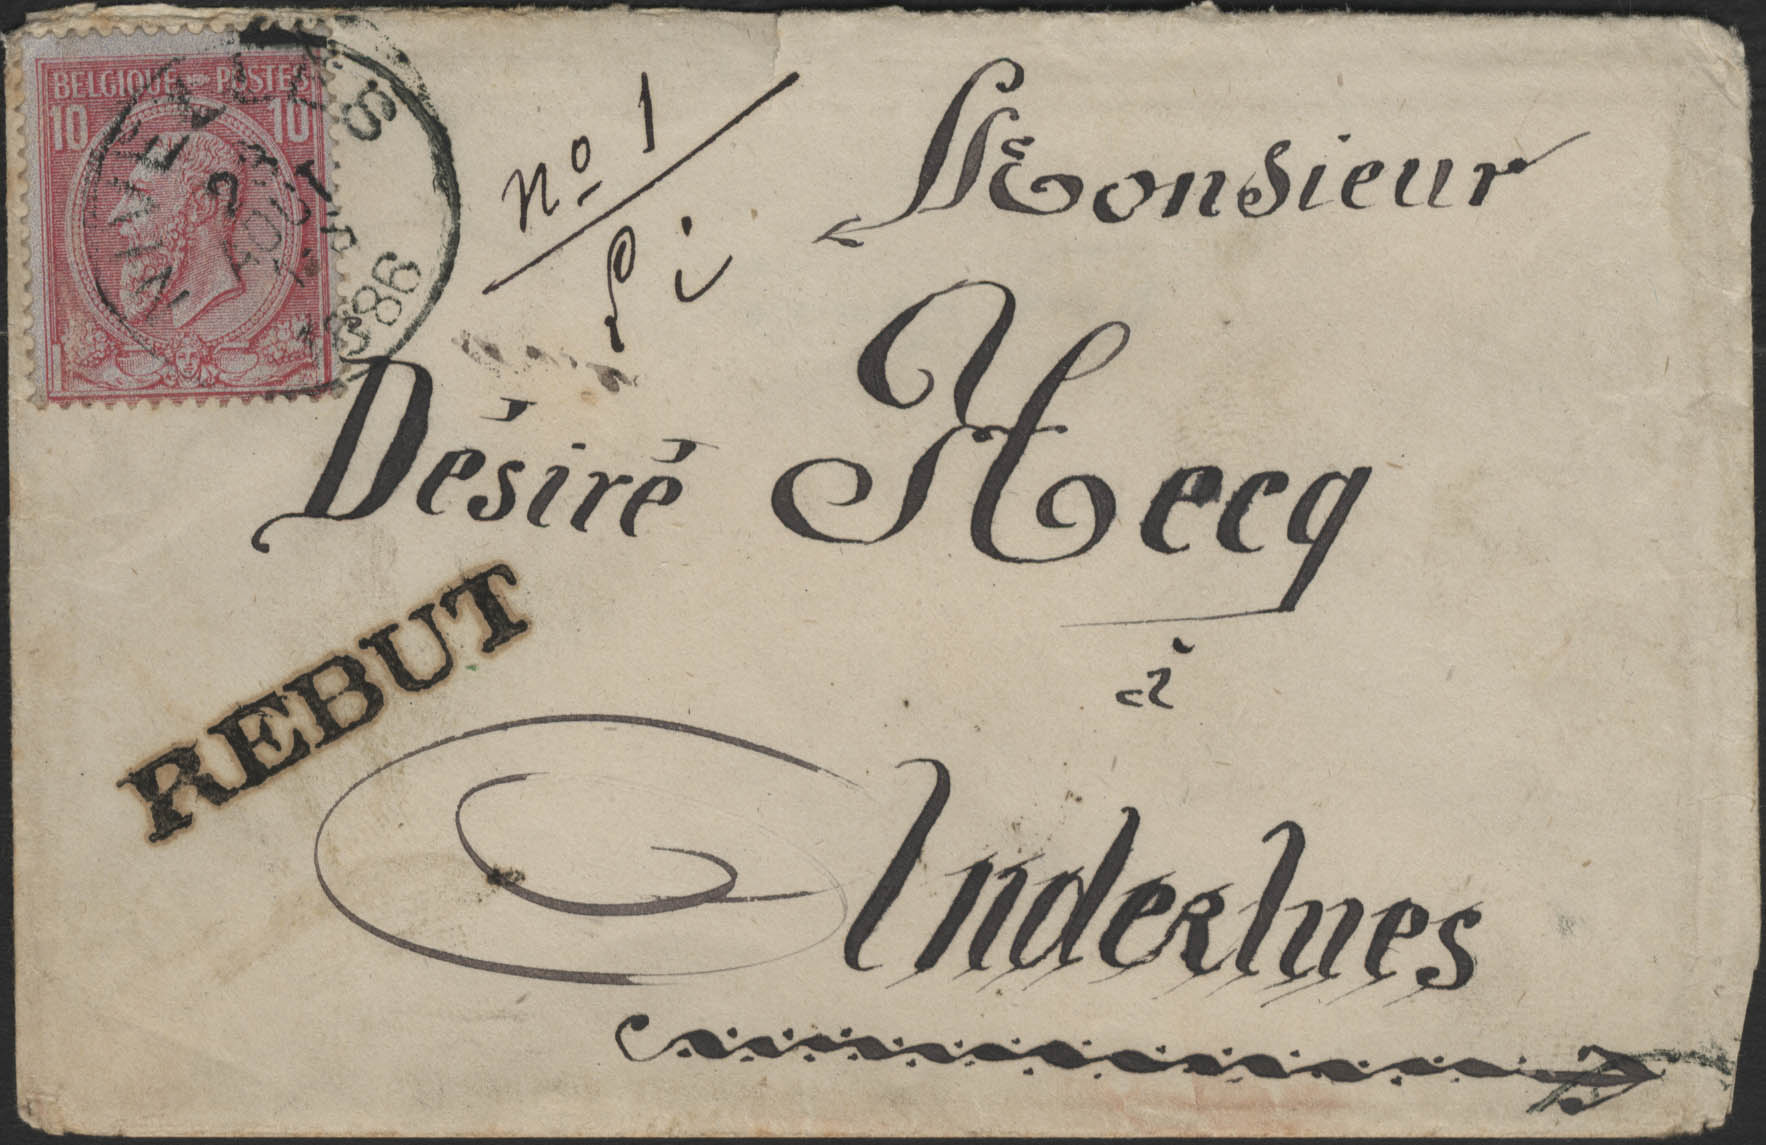 BELGIQUE POSTES
10 10
NIVELLES
2 AOUT
1886
No 1
Monsieur
Désiré Hecq
à
REBUT
Anderlues